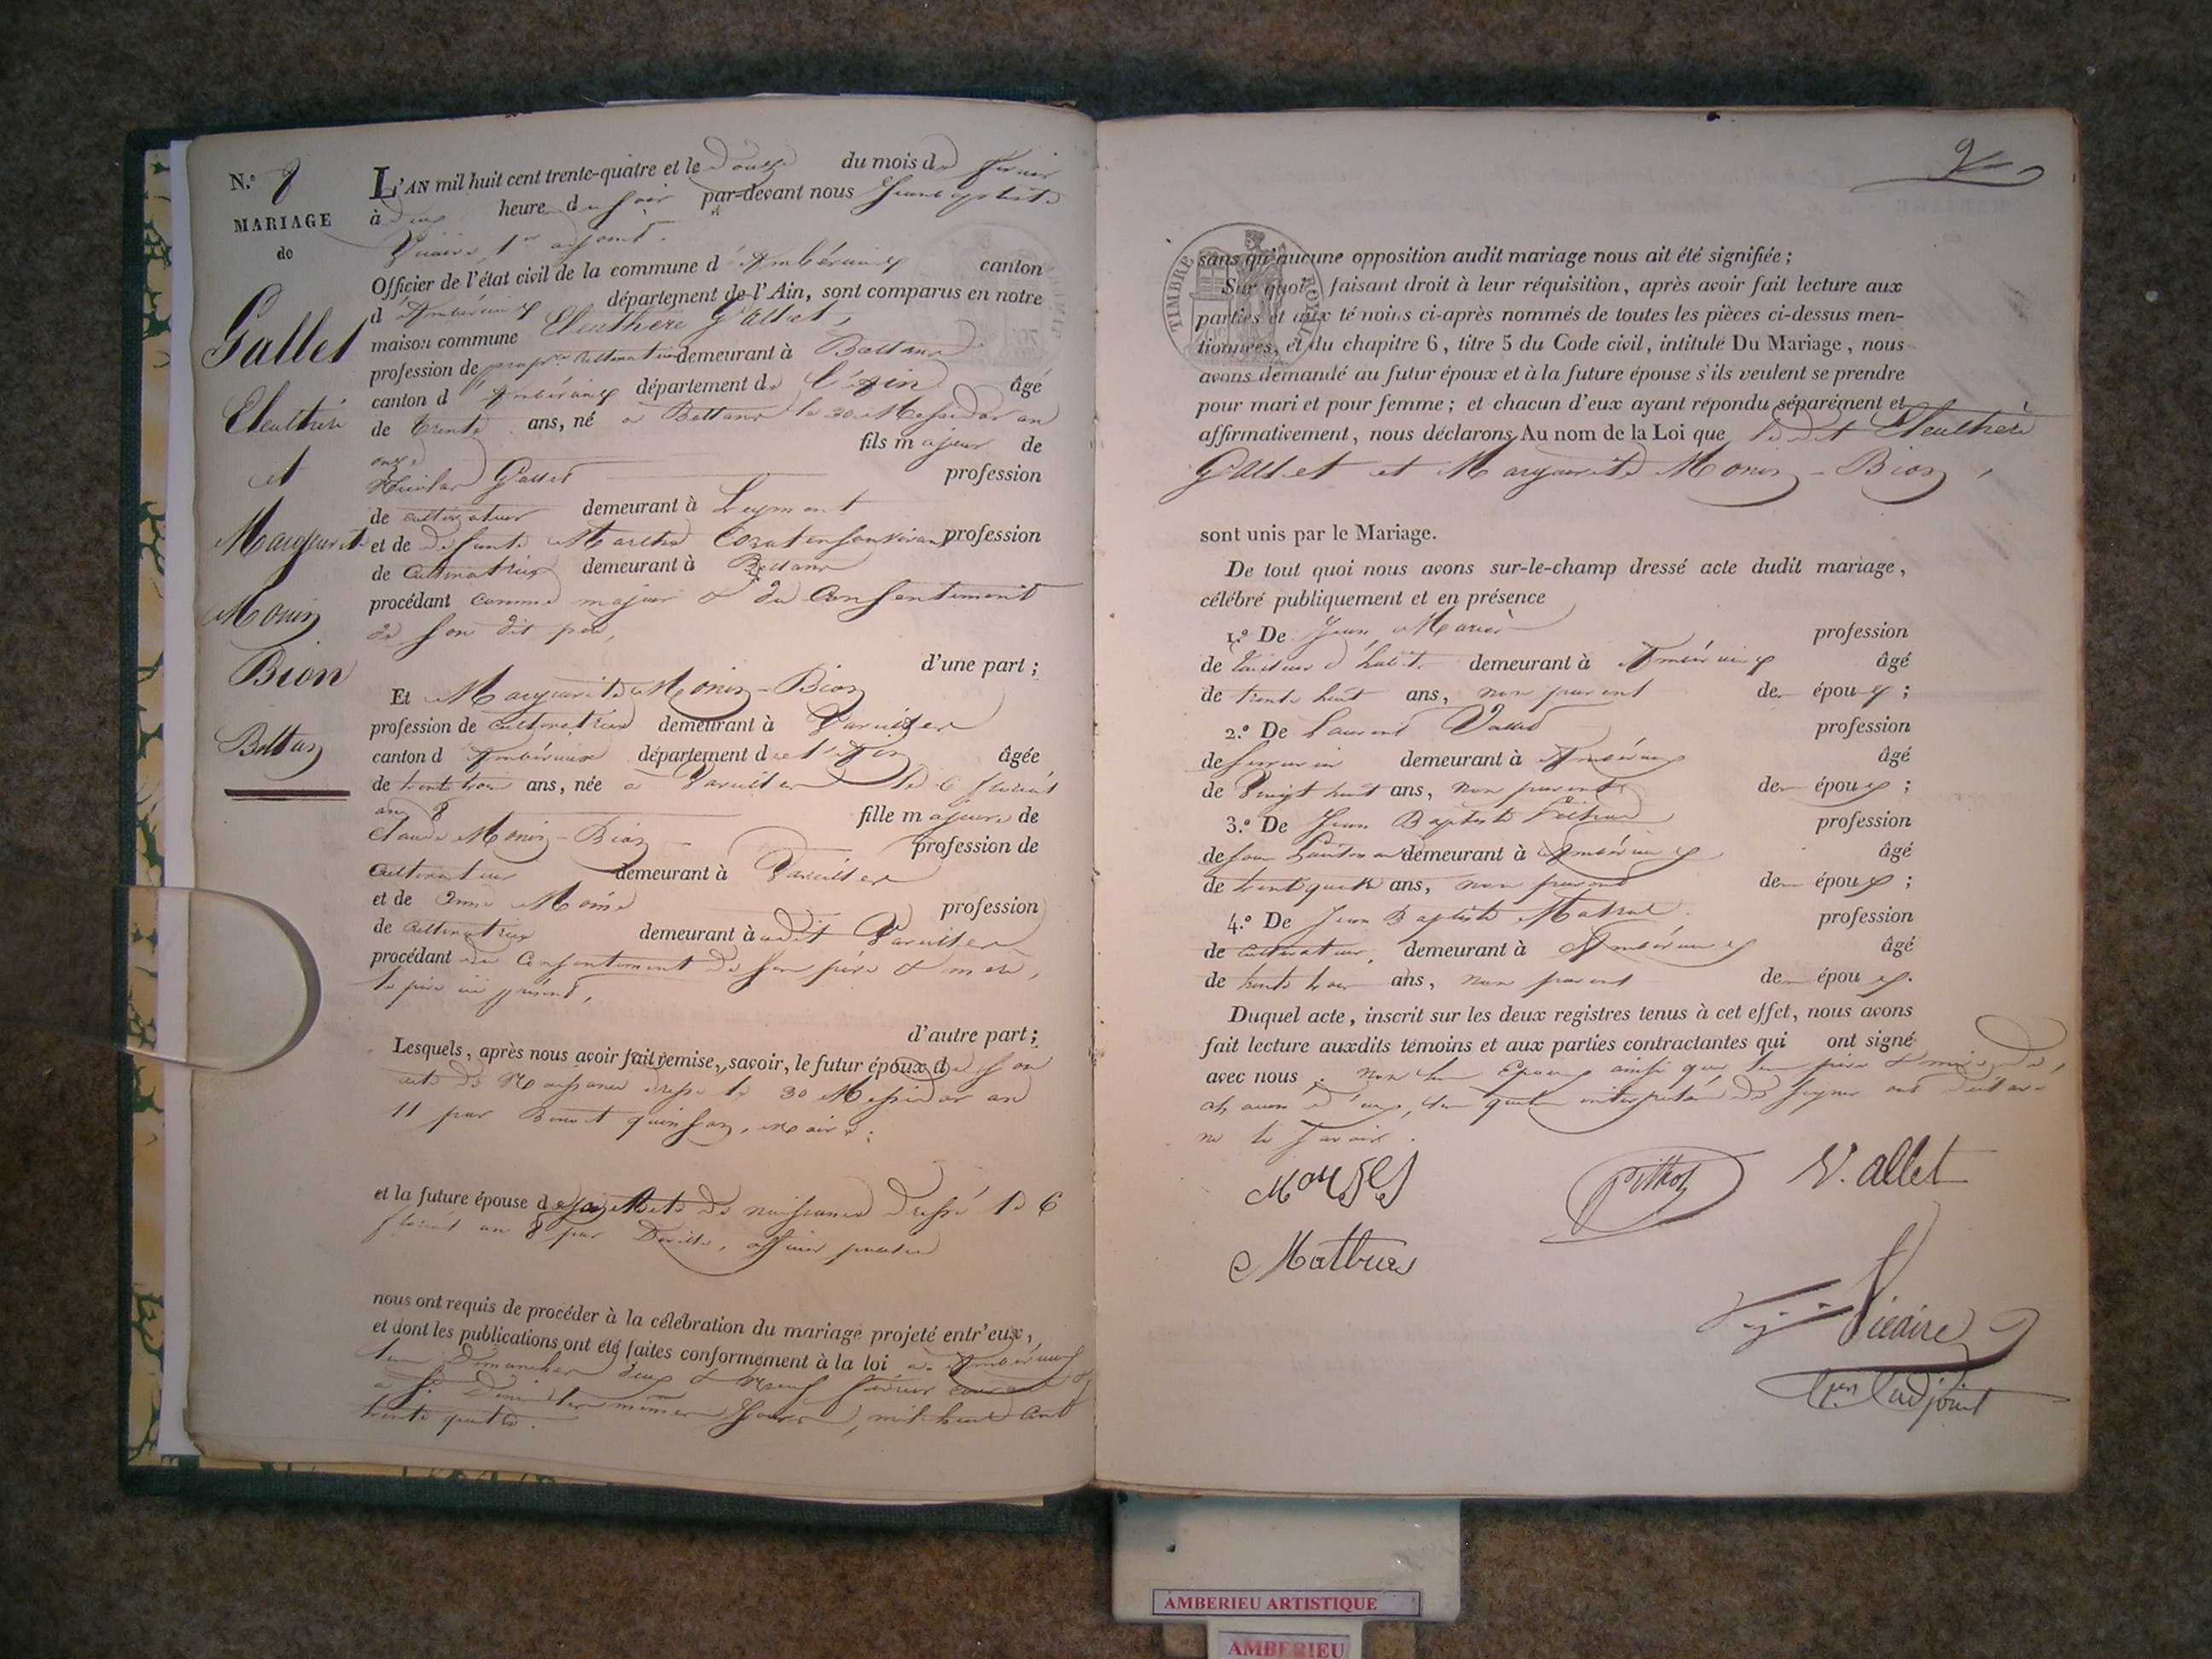 N.° 8
MARIAGE
de
Gallet
Eleuthère
et
Marguerite
Monin
Bion
Bettan
L'AN mil huit cent trente-quatre et le douze du mois de février
à deux heure du soir par-devant nous Jean Baptiste
Vicaire, 1er adjoint.
Officier de l'état civil de la commune d'Ambérieux canton
d'Ambérieux département de l'Ain, sont comparus en notre
maison commune Eleuthère Gallet,
profession de propre cultivateur demeurant à Bettans
canton d'Ambérieux département de l'Ain âgé
de trente ans, né à Bettans le 30 Messidor an
onze fils majeur de
Nicolas Gallet profession
de cultivateur demeurant à Leyment
et de défunte Marthe en son vivant profession
de cultivatrice demeurant à Bettans
procédant comme majeur & du consentement
de son dit père,
d'une part ;
Et Marguerite Monin-Bion
profession de cultivatrice demeurant à Vareilles
canton d'Ambérieux département de l'Ain âgée
de trente trois ans, née à Vareilles le 6 floréal
an 8 fille majeure de
Claude Monin-Bion profession de
cultivateur demeurant à Vareilles
et de Anne Moine profession
de cultivatrice demeurant à audit Vareilles
procédant du consentement de son père & mère,
le père ici présent,
d'autre part ;
Lesquels, après nous avoir fait remise, savoir, le futur époux de son
acte de naissance dressé le 30 Messidor an
11 par Benoit quinson, maire ;
et la future épouse de son acte de naissance dressé le 6
floréal an 8 par officier public
nous ont requis de procéder à la célébration du mariage projeté entr'eux,
et dont les publications ont été faites conformement à la loi à Ambérieux
les Dimanches deux & neuf février courant &
à St Denis les mêmes jours, mil huit cent
trente quatre.
sans qu'aucune opposition audit mariage nous ait été signifiée ;
TIMBRE ROYAL
Sur quoi, faisant droit à leur réquisition, après avoir fait lecture aux
parties et aux témoins ci-après nommés de toutes les pièces ci-dessus men-
tionnées, et du chapitre 6, titre 5 du Code civil, intitulé Du Mariage, nous
avons demandé au futur époux et à la future épouse s'ils veulent se prendre
pour mari et pour femme ; et chacun d'eux ayant répondu séparément et
affirmativement, nous déclarons Au nom de la Loi que le dit Eleuthère
Gallet et Marguerite Monin-Bion,
sont unis par le Mariage.
De tout quoi nous avons sur-le-champ dressé acte dudit mariage,
célébré publiquement et en présence
1.° De Jean profession
de tailleur d'habits demeurant à Ambérieux âgé
de trente huit ans, non parent des époux ;
2.° De Laurent Vallet profession
de demeurant à Ambérieux âgé
de Vingt huit ans, non parent des époux ;
3.° De Jean Baptiste profession
de demeurant à Ambérieux âgé
de trente quatre ans, non parent des époux ;
4.° De Jean Baptiste profession
de cultivateur, demeurant à Ambérieux âgé
de trente trois ans, non parent des époux.
Duquel acte, inscrit sur les deux registres tenus à cet effet, nous avons
fait lecture auxdits témoins et aux parties contractantes qui ont signé
avec nous ; non les Epoux ainsi que leur père & mère de
chacun d'eux, lesquels interpellés de signer ont déclaré
ne le savoir.
V. allet
Vicaire
1er adjoint
AMBERIEU ARTISTIQUE
AMBERIEU